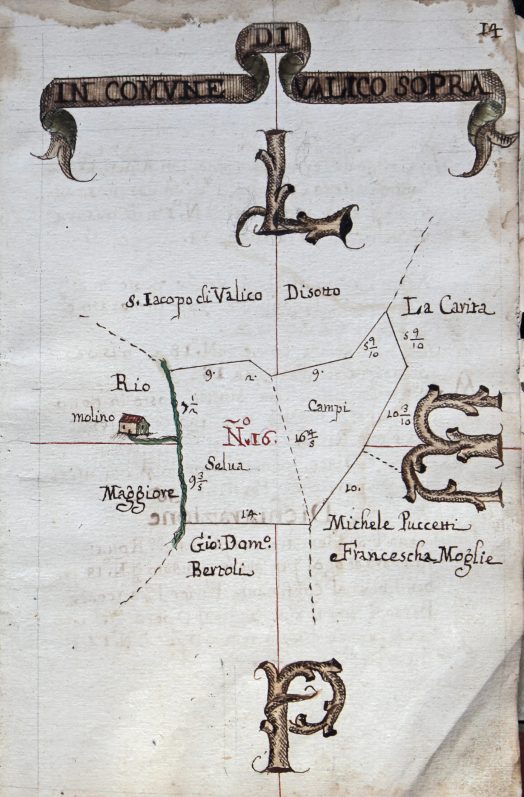 14
DI
IN COMVNE VALICO SOPRA
L
S. Iacopo di Valico Disotto
La Carita
5 9/10
5 9/10
9.
2.
9.
Rio
7 1/2
Campi
molino
Ño 16.
16 4/5
10 3/10
M
Selua
9 3/5
Maggiore
10.
14.
Michele Puccetti
e Francescha Moglie
Gio: Domo.
Bertoli
P